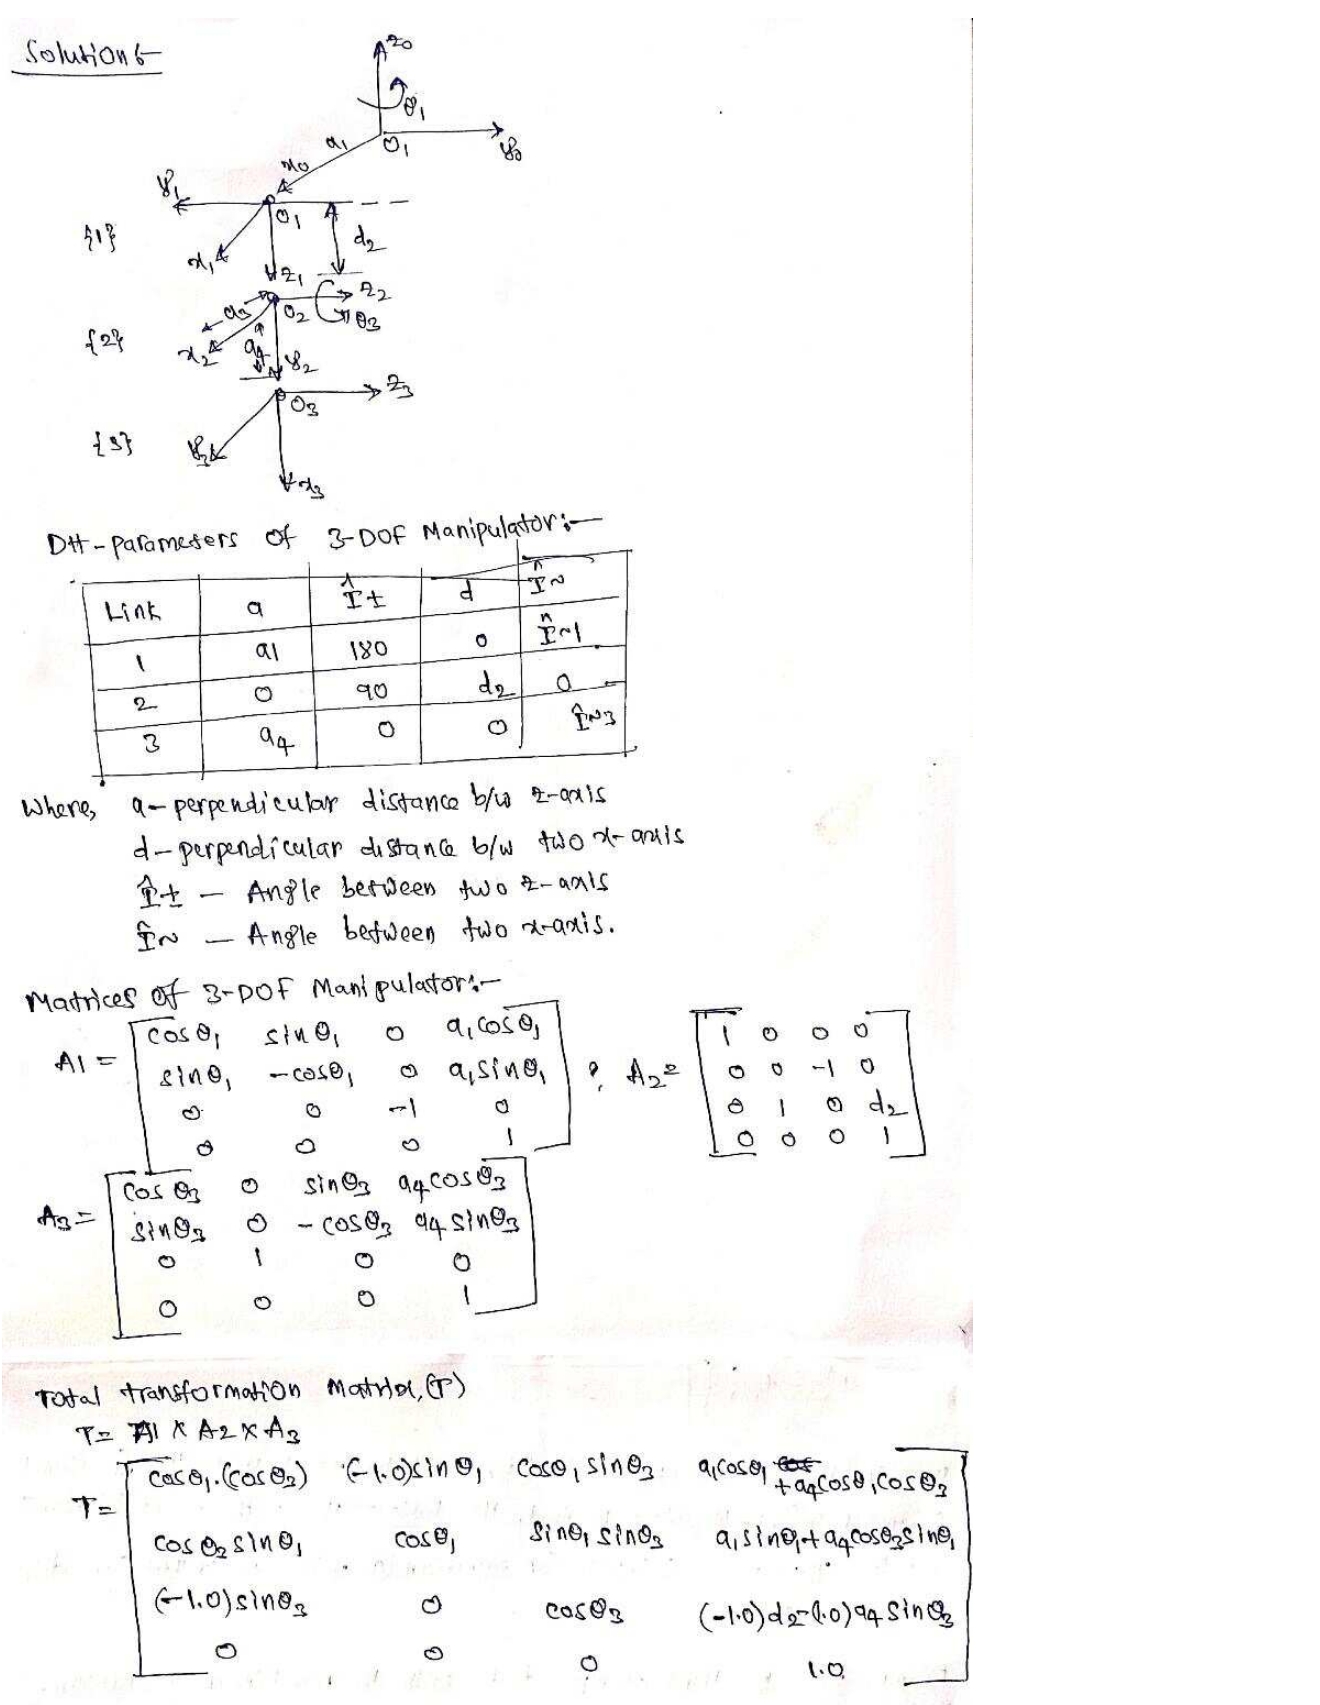 Solution:-
z0
θ1
a1
O1
y0
x0
y1
O1
{1}
d2
x1
z1
z2
a3
O2
θ3
{2}
x2
a4
y2
z3
O3
{3}
y3
x3
DH-parameters of 3-DOF Manipulator:-
Link a Î± d Î~
1 a1 180 0 Î~1
2 0 90 d2 0
3 a4 0 0 Î~3
Where, a - perpendicular distance b/w z-axis
d - perpendicular distance b/w two x-axis
Î± - Angle between two z-axis
Î~ - Angle between two x-axis.
Matrices of 3-DOF Manipulator:-
cosθ1 sinθ1 0 a1cosθ1
A1 = sinθ1 -cosθ1 0 a1sinθ1 , A2 =
0 0 -1 0
0 0 0 1
1 0 0 0
0 0 -1 0
0 1 0 d2
0 0 0 1
cosθ3 0 sinθ3 a4cosθ3
A3 = sinθ3 0 -cosθ3 a4sinθ3
0 1 0 0
0 0 0 1
Total transformation Matrix, (T)
T = A1 x A2 x A3
cosθ1.(cosθ3) (-1.0)sinθ1 cosθ1sinθ3 a1cosθ1 +a4cosθ1cosθ3
T =
cosθ3sinθ1 cosθ1 sinθ1sinθ3 a1sinθ1+a4cosθ3sinθ1
(-1.0)sinθ3 0 cosθ3 (-1.0)d2-(1.0)a4sinθ3
0 0 0 1.0